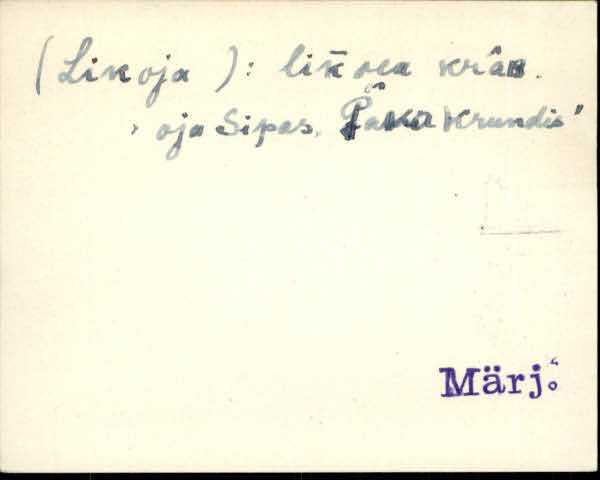 (Likoja): lik̄oea krâɒ.
› oja Sipas. Paka krundis"
Märj.